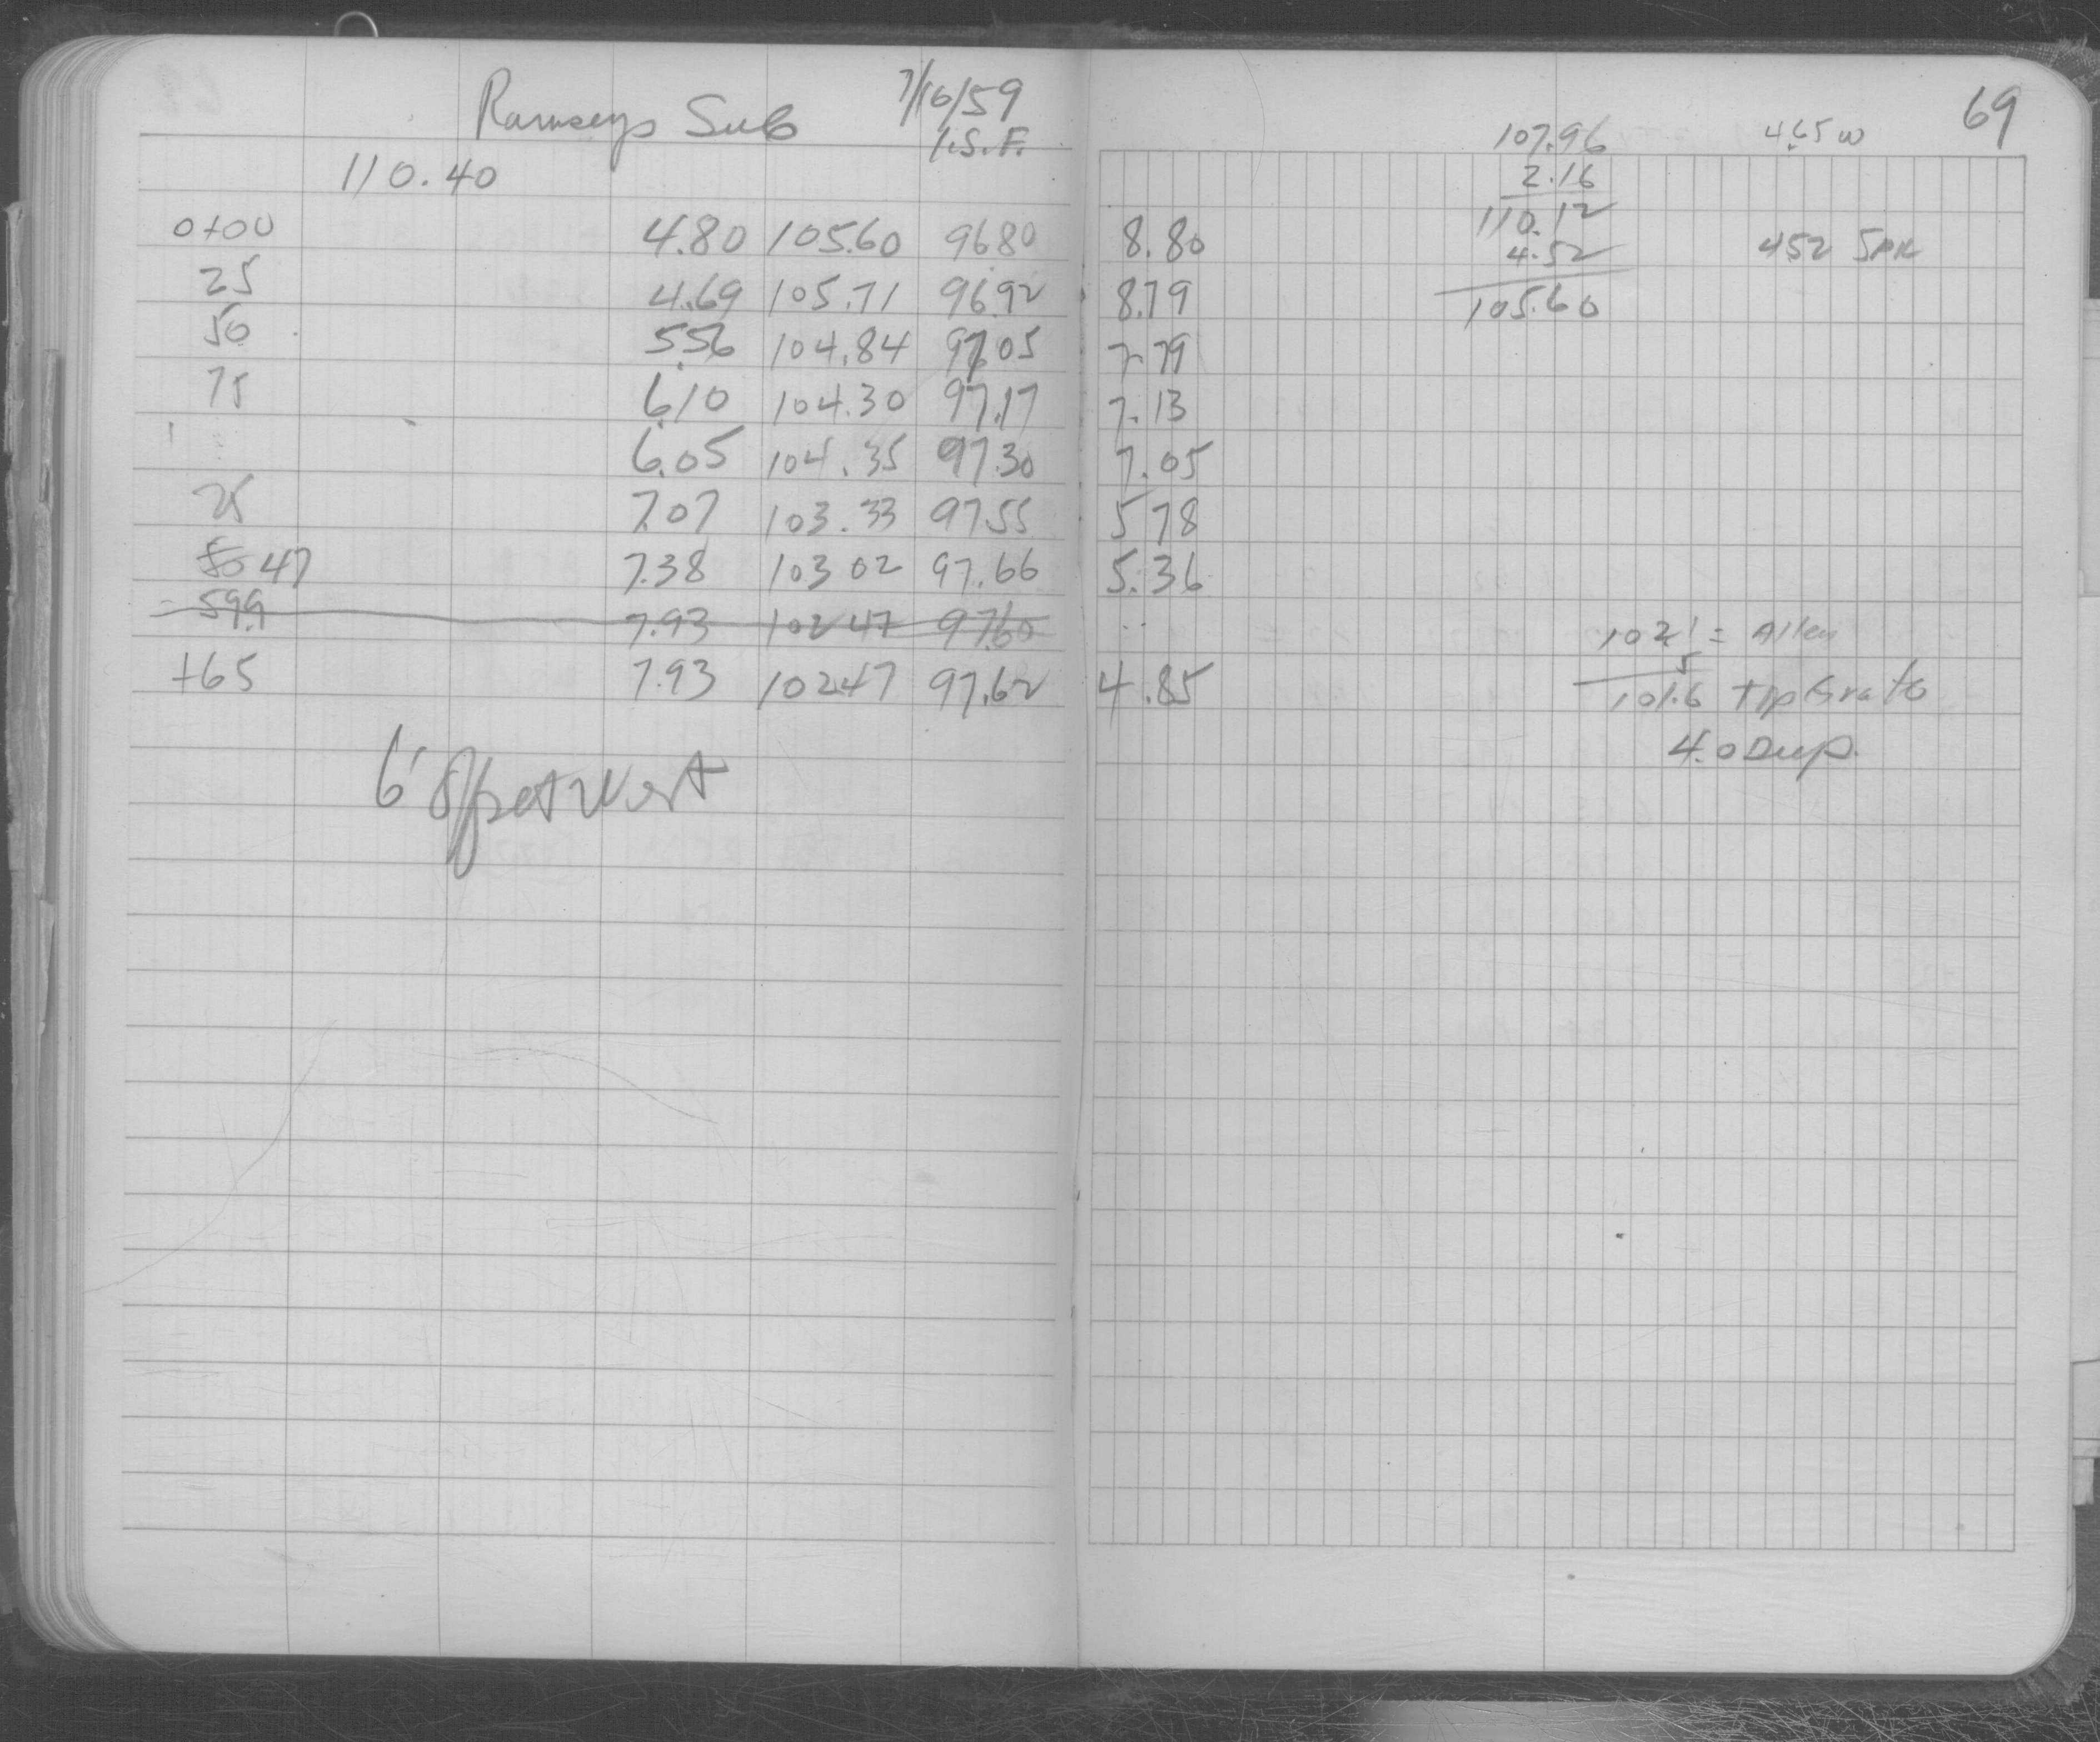 Ramseys Sub 7/16/59
I.S.F.
110.40
0+00 4.80 105.60 96.80
25 4.69 105.71 96.92
50 5.56 104.84 97.05
75 6.10 104.30 97.17
1 6.05 104.35 97.30
25 7.07 103.33 97.55
50 47 7.38 103 02 97.66
599 7.93 102 47 97.60
+65 7.93 102.47 97.62
6' Offset West
69
107.96 4.65 W
2.16
110.12
8.80 4.52 452 SPK
8.79 105.60
7.79
7.13
7.05
5 78
5.36
102.1 = Allen
5
4.85 101.6 Top Grate
4.0 Deep.